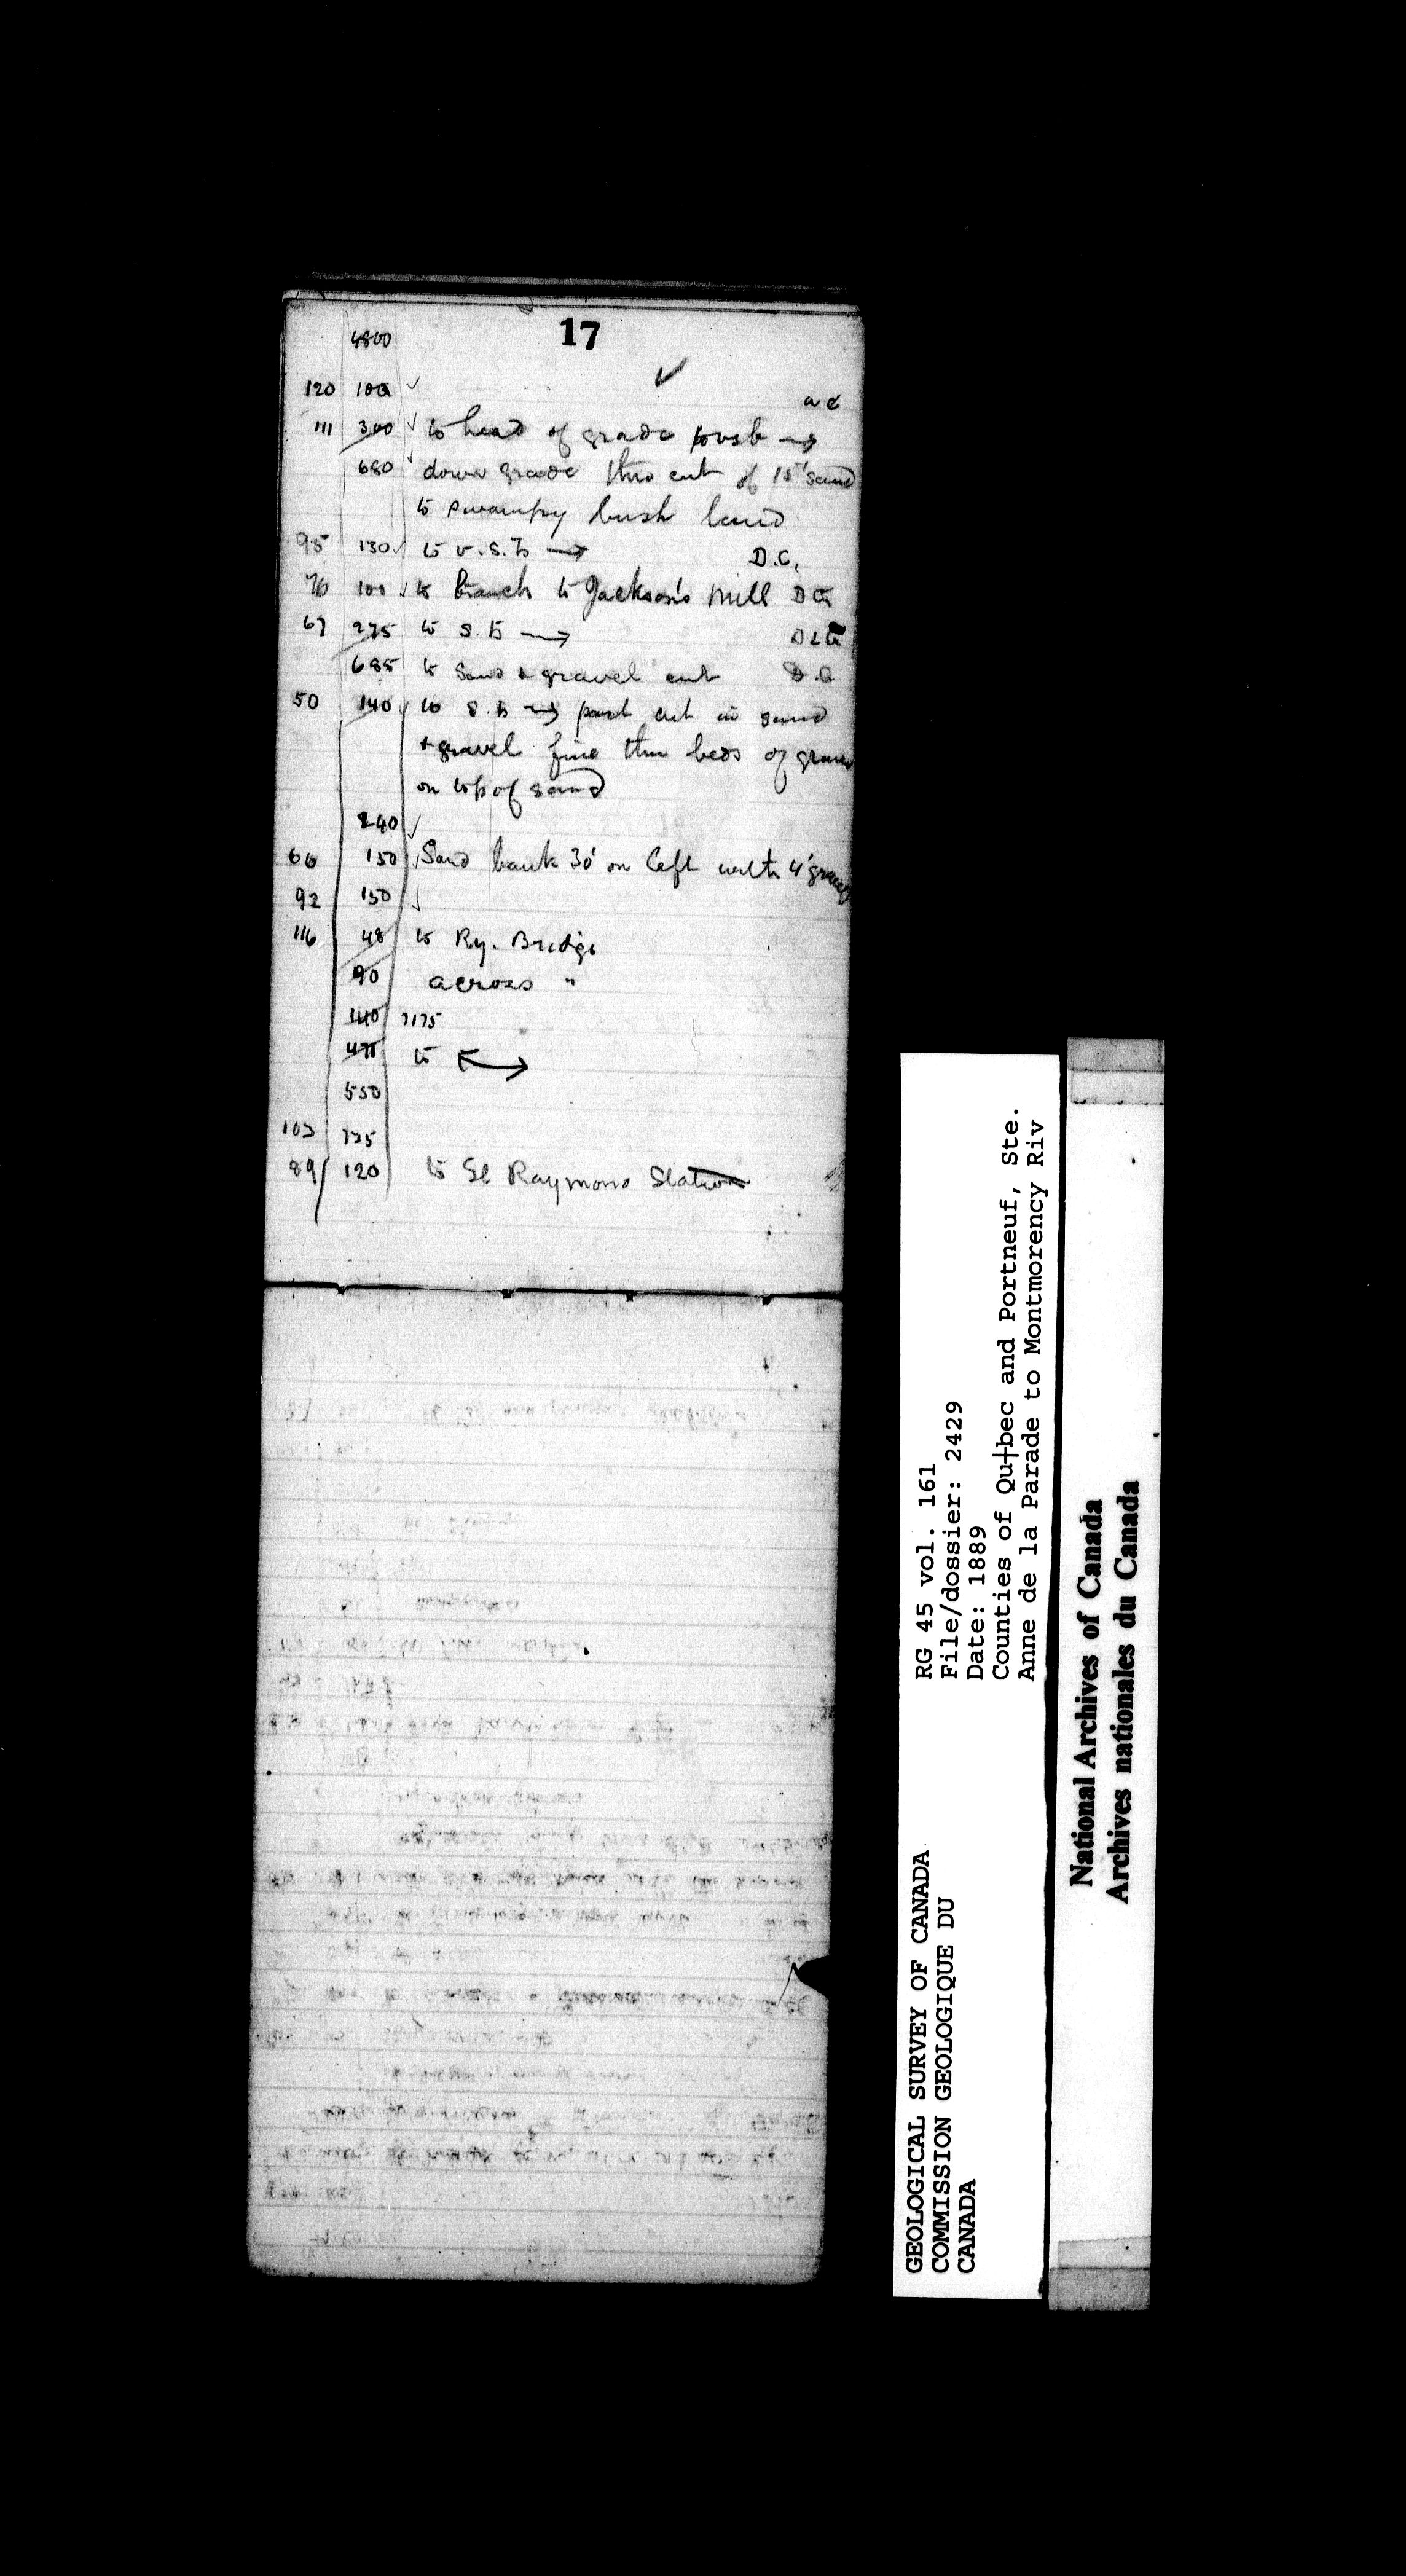 17
4800
120 100 ✓ ✓
a c
111 300 ✓ to head of grade →
680 ✓ down grade thro cut of 15' sand
to swampy bush land
95 130 ✓ to v.S.to → D.C.
76 100 ✓ to branch to Jackson's Mill D G
67 275 to S.to →
685 to Sand + gravel cut
50 140 to S.to → part cut in sand
+ gravel fine thin beds of gravel
on top of sand
240 ✓
66 150 Sand bank 30' on left with 4' gravel
92 150 ✓
116 48 to Ry. Bridge
90 across "
140 7175
475 to ↔
550
103 725
89 120 to St Raymond Station
RG 45 vol. 161
File/dossier: 2429
Date: 1889
Counties of Qu┼bec and Portneuf, Ste.
Anne de la Parade to Montmorency Riv
GEOLOGICAL SURVEY OF CANADA
COMMISSION GEOLOGIQUE DU
CANADA
National Archives of Canada
Archives nationales du Canada